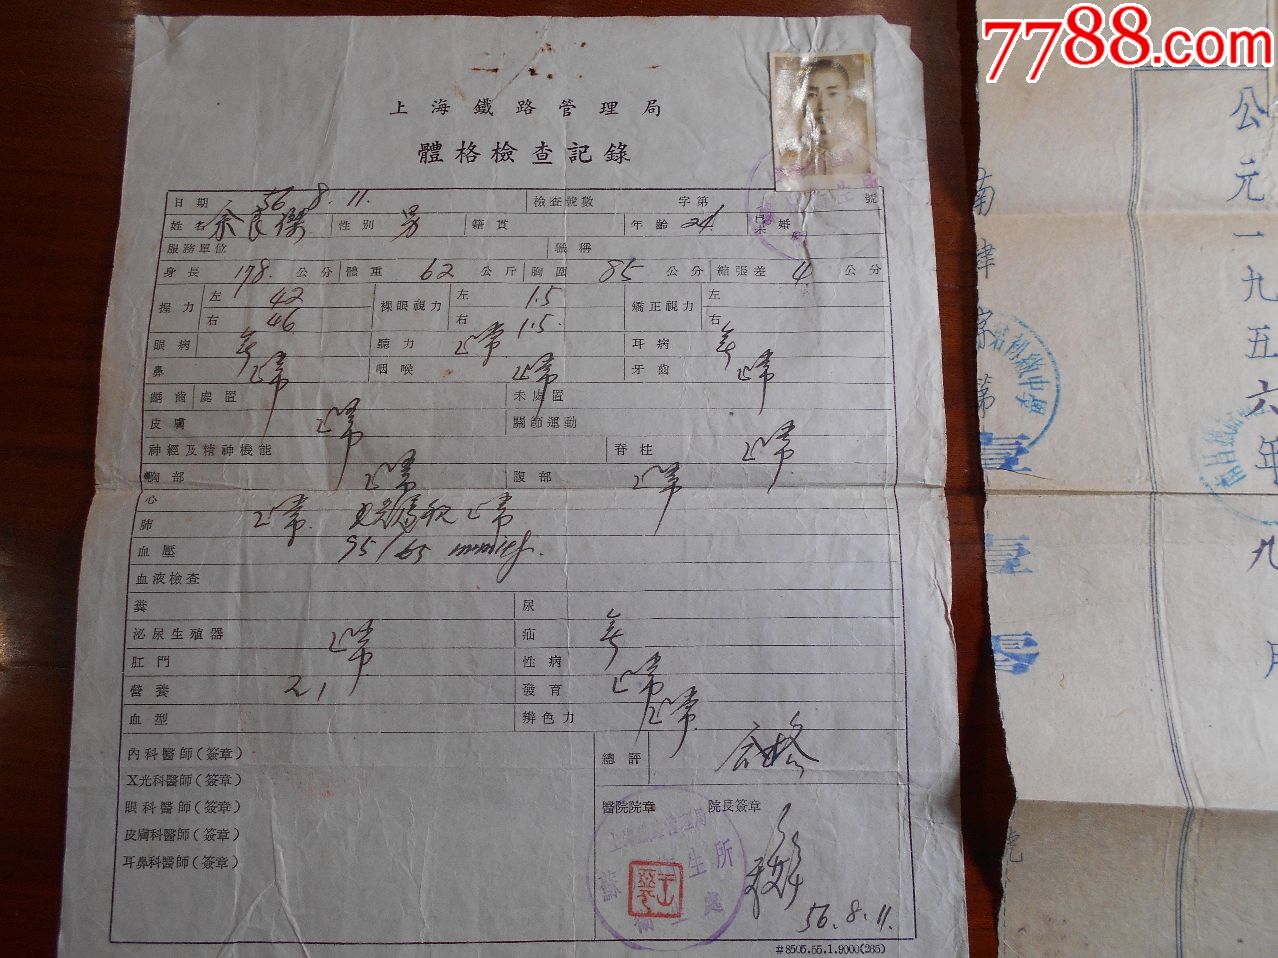 7788.com
上海鐵路管理局
體格檢查記錄
日期 56.8.11. 檢查號數 字第 號
姓名 余良傑 性別 男 籍貫 年齡 24 已未婚
服務單位 職稱
身長 178 公分 體重 62 公斤 胸圍 85 公分 縮張差 4 公分
握力 左 42 右 46 裸眼視力 左 1.5 右 1.5. 矯正視力 左 右
眼病 無 聽力 正常 耳病 無
鼻 正常 咽喉 正常 牙齒 正常
齲齒處置 未處置
皮膚 正常 關節運動
神經及精神機能 脊柱 正常
胸部 正常 腹部 正常
心
肺 正常
血壓 95/65
血液檢查
糞 尿
泌尿生殖器 正常 疝 無
肛門 性病
營養 2,1 發育 正常
血型 辨色力 正常
內科醫師(簽章)
X光科醫師(簽章)
眼科醫師(簽章)
皮膚科醫師(簽章)
耳鼻科醫師(簽章)
總評 合格
醫院院章 院長簽章
56.8.11.
#8505.55.1.9000(285)
公元一九五六年九月
南津字第壹壹零號